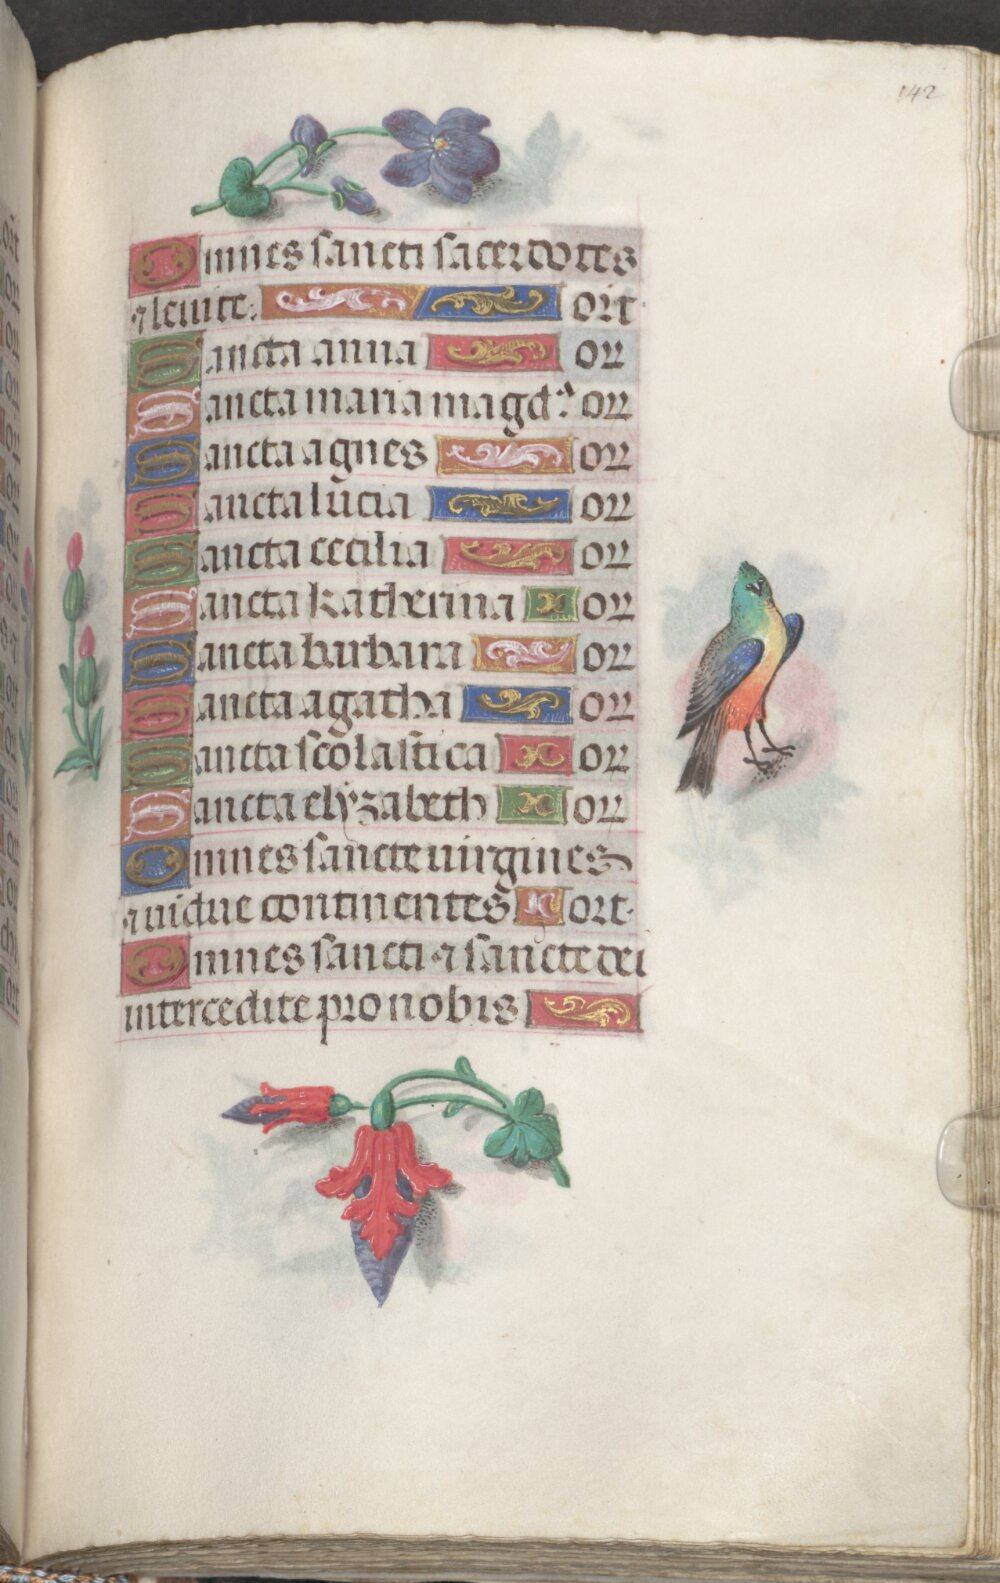 142
Omnes sancti sacerdotes
⁊ leuite. ort
Sancta anna or
Sancta maria magd.ᵃ or
Sancta agnes or
Sancta lucia or
Sancta cecilia or
Sancta katherina or
Sancta barbara or
Sancta agatha or
Sancta scolastica or
Sancta elyzabeth or
Omnes sancte uirgines
⁊ uidue continentes ort.
Omnes sancti ⁊ sancte dei
intercedite pro nobis